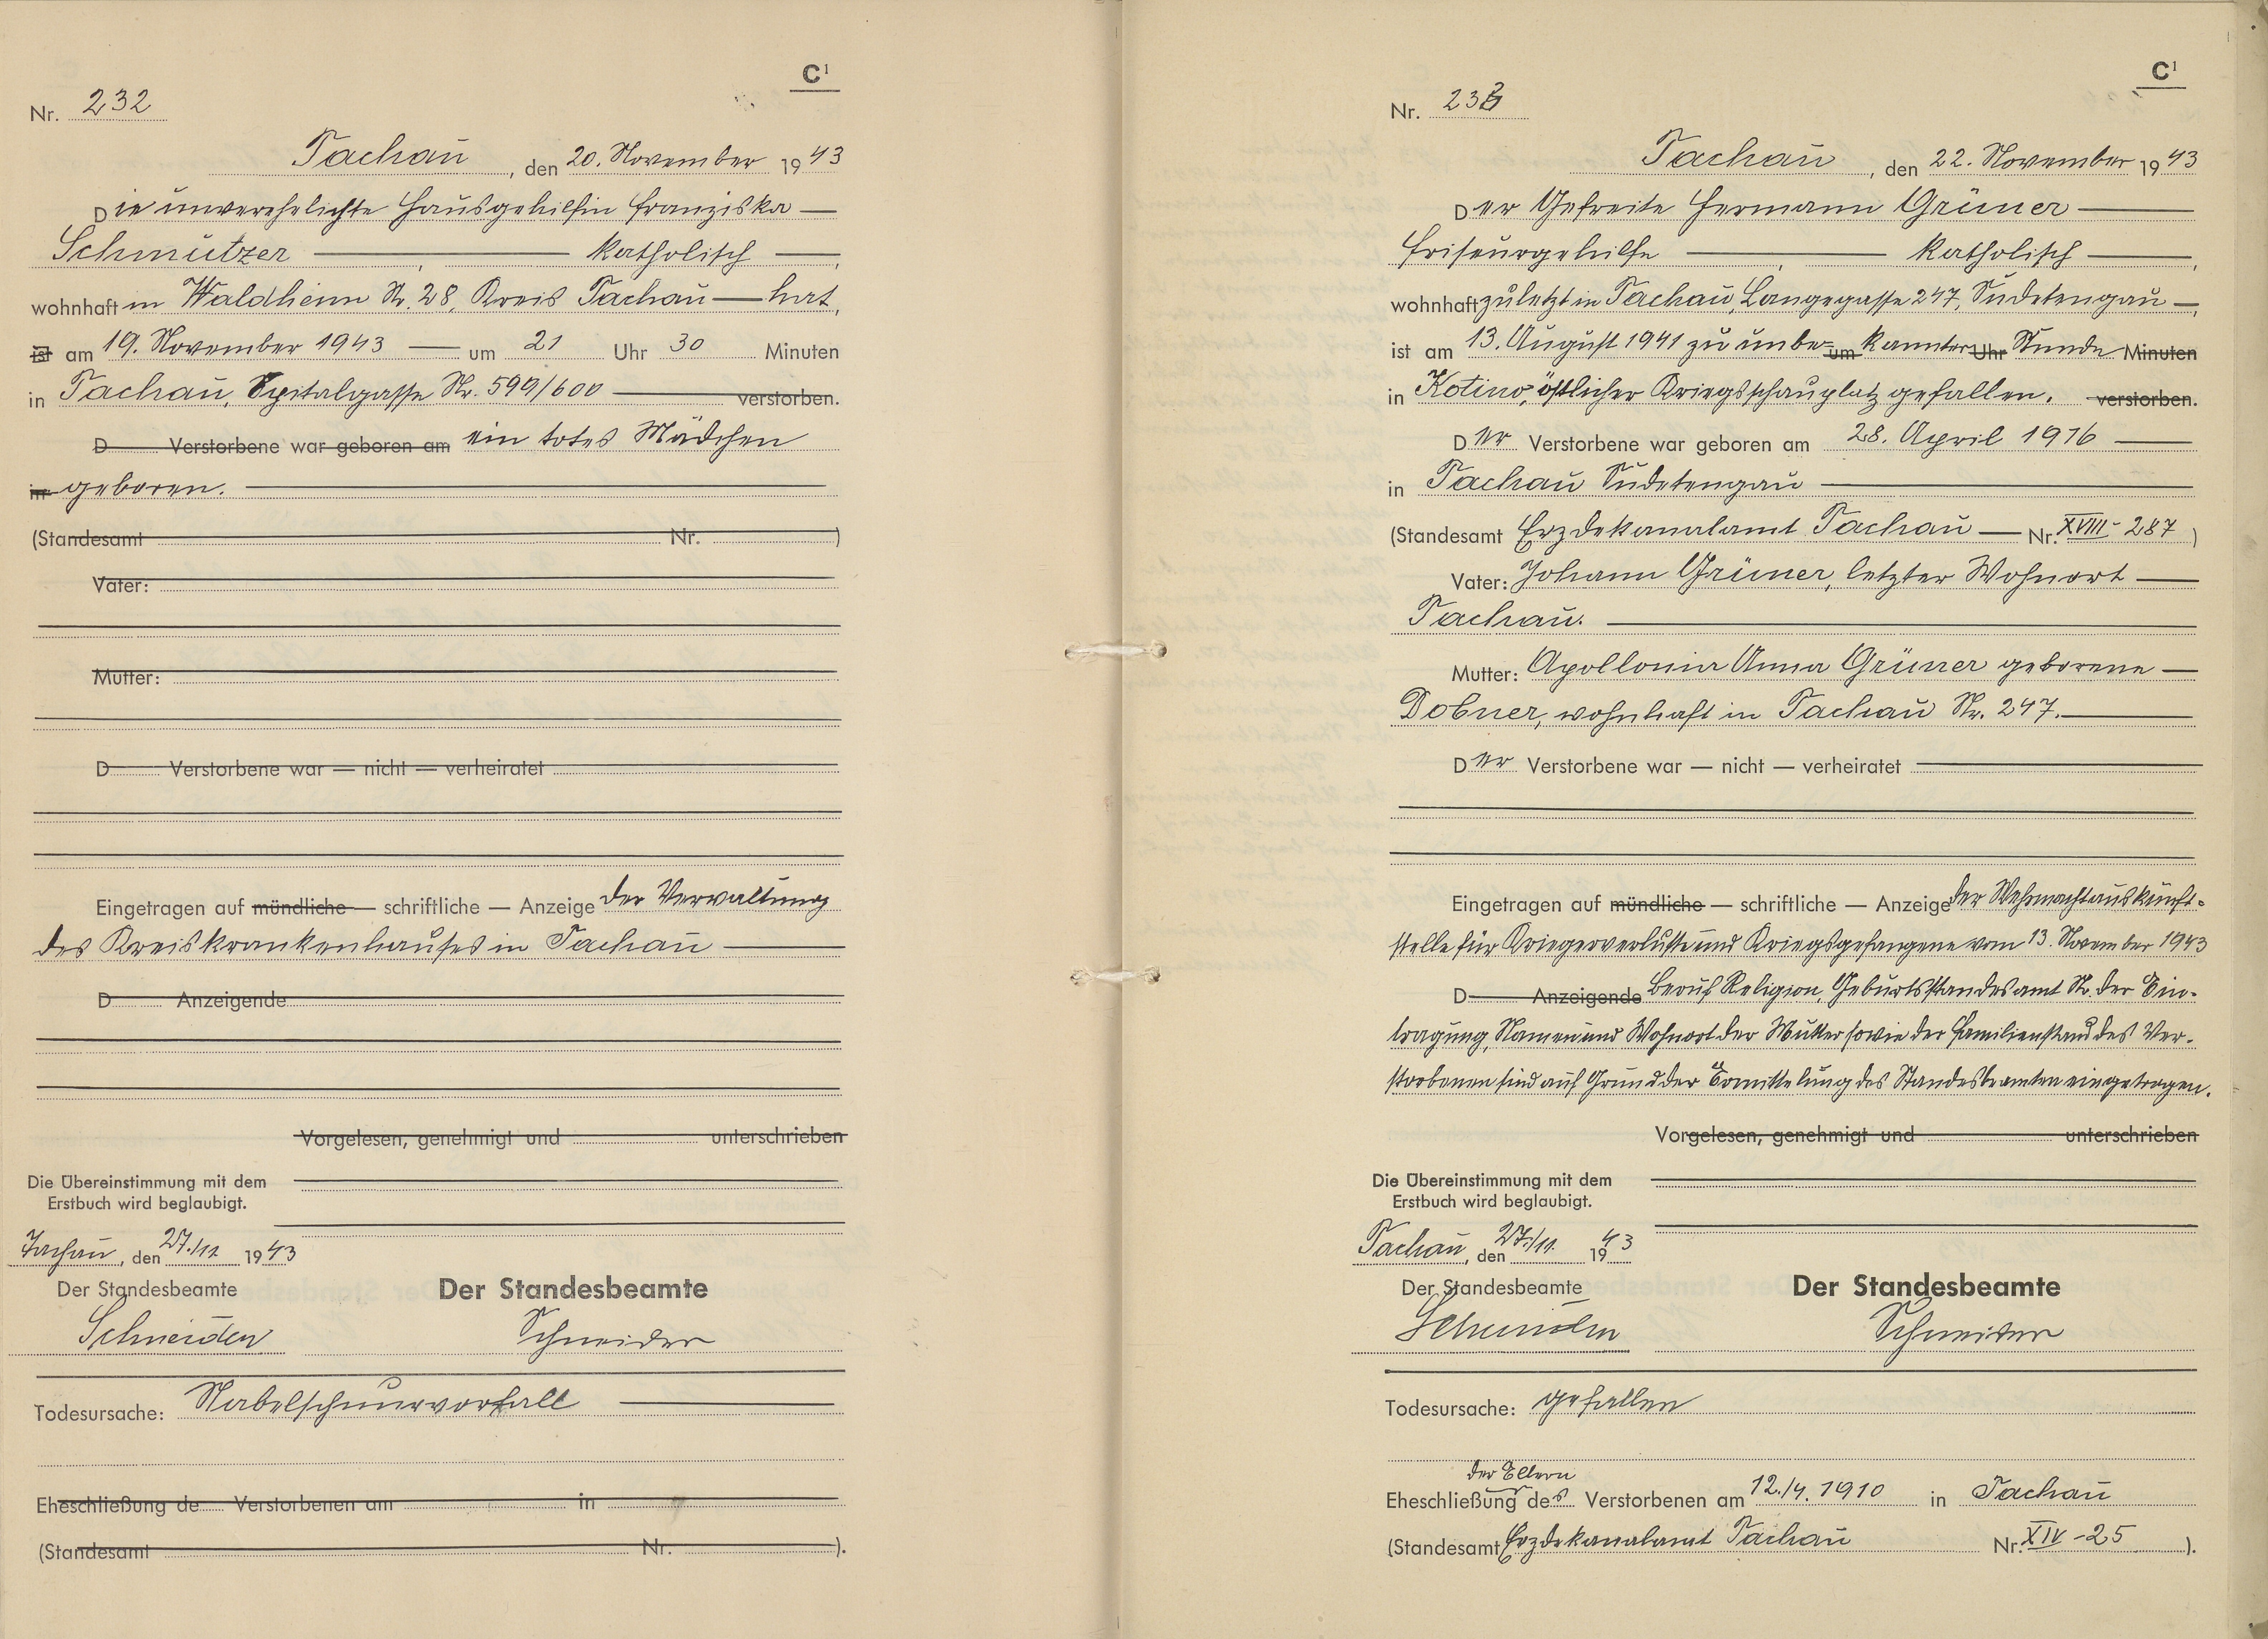 C¹
Nr. 232
Tachau, den 20. November 1943
Die unverehelichte Hausgehilfin Franziska —
Schmutzer — , — katholisch —,
wohnhaft in Waldheim Nr. 28, Kreis Tachau — hat,
ist am 19. November 1943 — um 21 Uhr 30 Minuten
in Tachau, Spitalgasse Nr. 599/600 — verstorben.
D Verstorbene war geboren am ein totes Mädchen
in geboren. —
(Standesamt Nr. )
Vater:
Mutter:
D Verstorbene war — nicht — verheiratet
Eingetragen auf mündliche — schriftliche — Anzeige der Verwaltung
des Kreiskrankenhauses in Tachau —
D Anzeigende
Vorgelesen, genehmigt und unterschrieben
Die Übereinstimmung mit dem
Erstbuch wird beglaubigt.
Tachau, den 27./11. 1943
Der Standesbeamte Der Standesbeamte
Schneider Schneider
Todesursache: Nabelschnurvorfall —
Eheschließung de Verstorbenen am in
(Standesamt Nr. ).
C¹
Nr. 233
Tachau, den 22. November 1943
Der Gefreite Hermann Grüner —
Friseurgehilfe — , — katholisch —,
wohnhaft zuletzt in Tachau, Langegasse 247, Sudetengau —,
ist am 13. August 1941 zu unbe= um kannter Uhr Stunde Minuten
in Kotino, östlicher Kriegsschauplatz gefallen. verstorben.
Der Verstorbene war geboren am 28. April 1916 —
in Tachau Sudetengau —
(Standesamt Erzdekanalamt Tachau — Nr. XVIII - 287 )
Vater: Johann Grüner, letzter Wohnort —
Tachau. —
Mutter: Apollonia Anna Grüner geborene —
Dobner, wohnhaft in Tachau Nr. 247. —
Der Verstorbene war — nicht — verheiratet
Eingetragen auf mündliche — schriftliche — Anzeige der Wehrmachtauskunft=
stelle für Kriegerverluste und Kriegsgefangene vom 13. November 1943
D Anzeigende Beruf Religion, Geburtsstandesamt Nr. der Ein-
tragung, Namen und Wohnort der Mutter sowie der Familienstand des Ver-
storbenen sind auf Grund der Ermittelung des Standesbeamten eingetragen.
Vorgelesen, genehmigt und unterschrieben
Die Übereinstimmung mit dem
Erstbuch wird beglaubigt.
Tachau, den 27./11. 1943
Der Standesbeamte Der Standesbeamte
Schneider Schneider
Todesursache: gefallen
der Eltern
Eheschließung des Verstorbenen am 12./4. 1910 in Tachau
(Standesamt Erzdekanalamt Tachau Nr. XIV - 25 ).